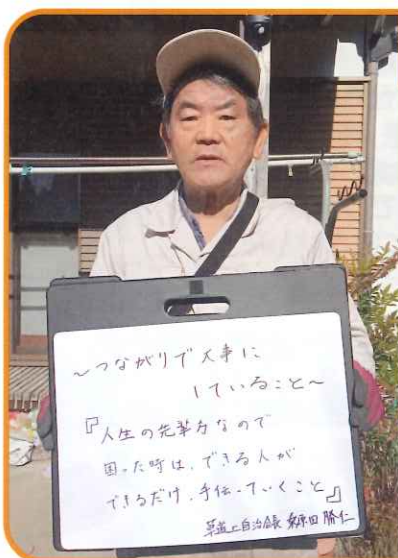 ～つながりで大事に
していること～
『人生の先輩方なので
困った時は、できる人が
できるだけ、手伝っていくこと』
草道上自治会長 桑原田 勝仁